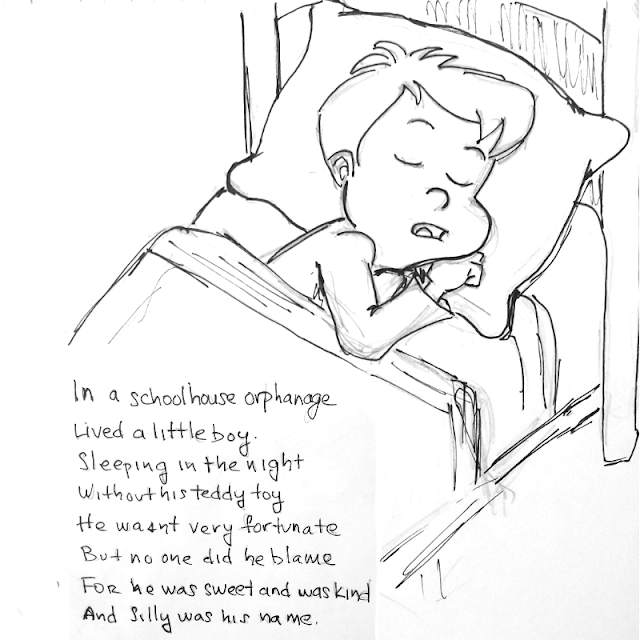 In a schoolhouse orphanage
Lived a little boy.
Sleeping in the night
Without his teddy toy
He wasnt very fortunate
But no one did he blame
For he was sweet and was kind
And Silly was his name.